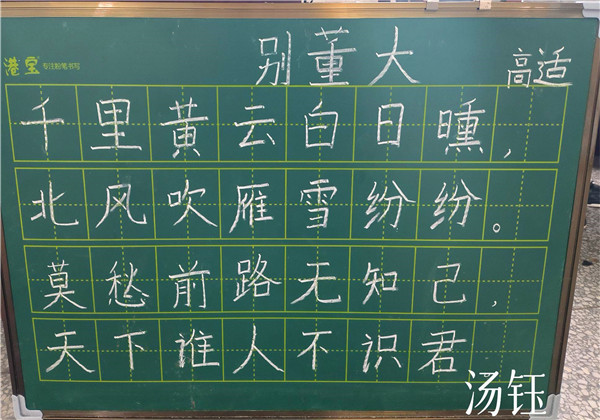 港宝 专注粉笔书写
别董大
高适
千里黄云白日曛,
北风吹雁雪纷纷。
莫愁前路无知己,
天下谁人不识君
汤钰